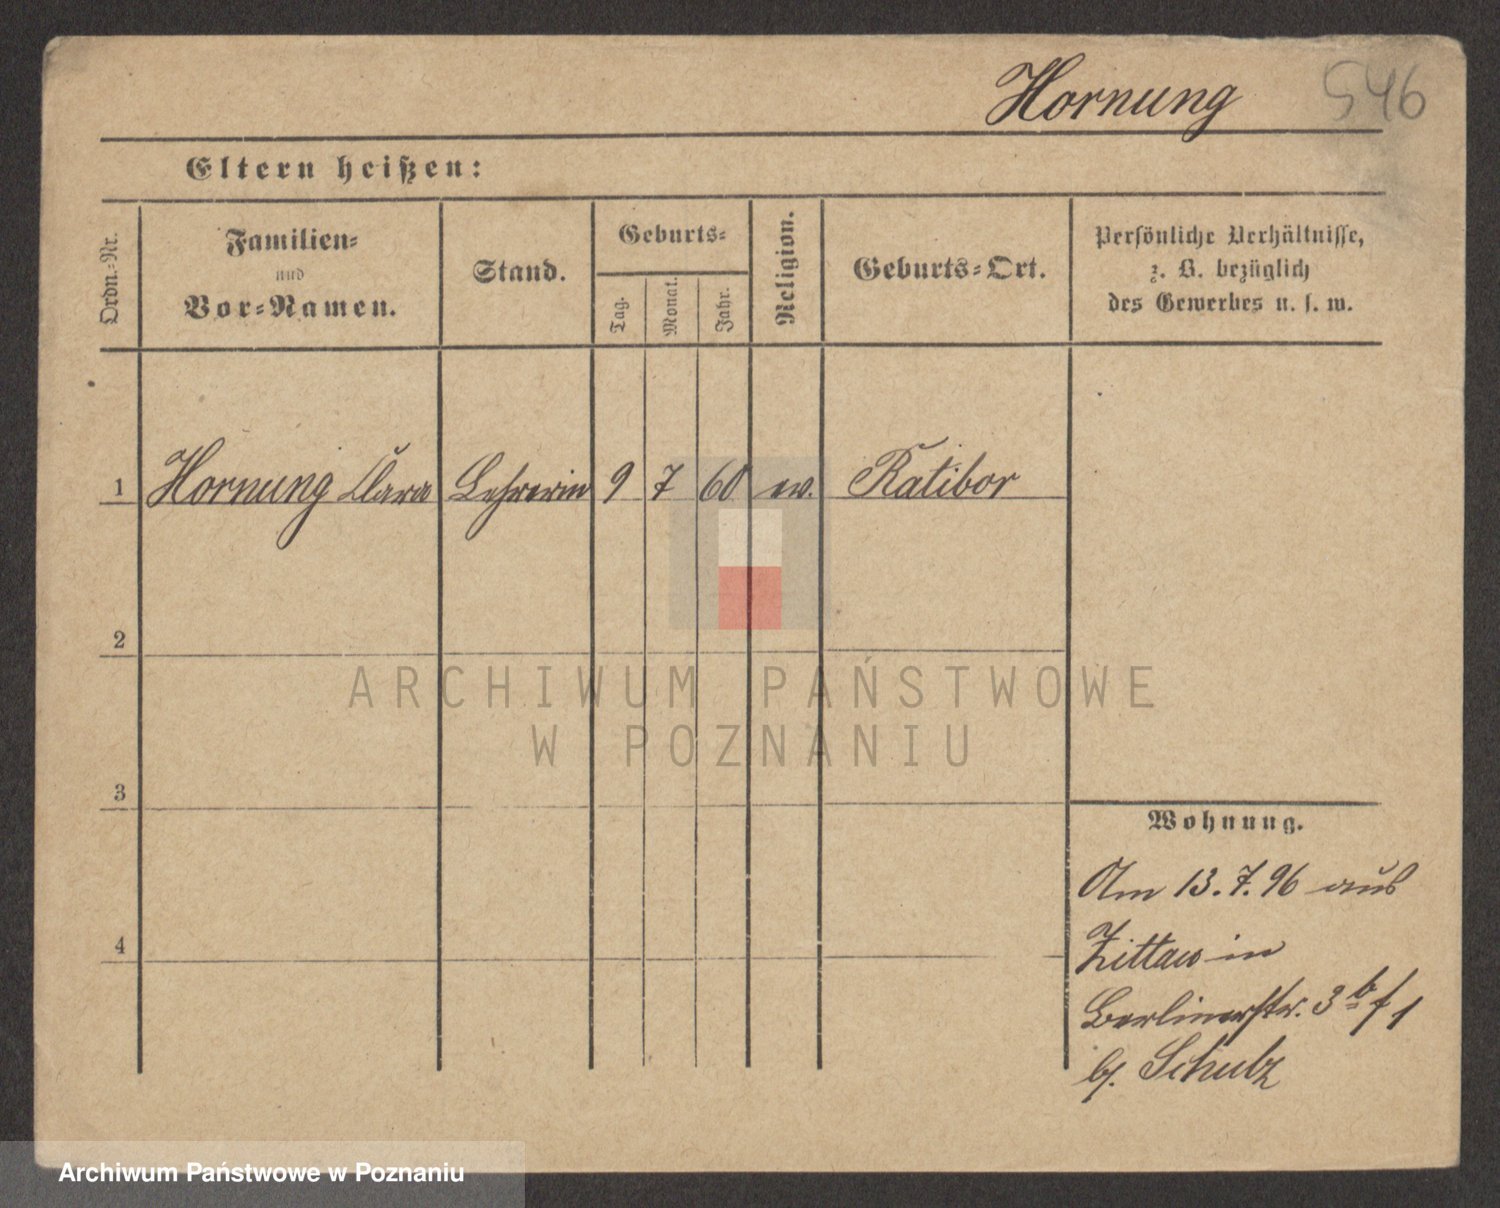 Hornung 546
Eltern heißen:
Ordn.-Nr.
Familien-
und
Vor-Namen.
Stand.
Geburts-
Tag.
Monat.
Jahr.
Religion.
Geburts-Ort.
Persönliche Verhältnisse,
z. B. bezüglich
des Gewerbes u. s. w.
1 Hornung Clara Lehrerin 9 7 60 ev. Ratibor
2
3
4
Wohnung.
Am 13.7.96 aus
Zittau in
Berlinerstr. 3b f 1
b. Schulz
ARCHIWUM PAŃSTWOWE
W POZNANIU
Archiwum Państwowe w Poznaniu